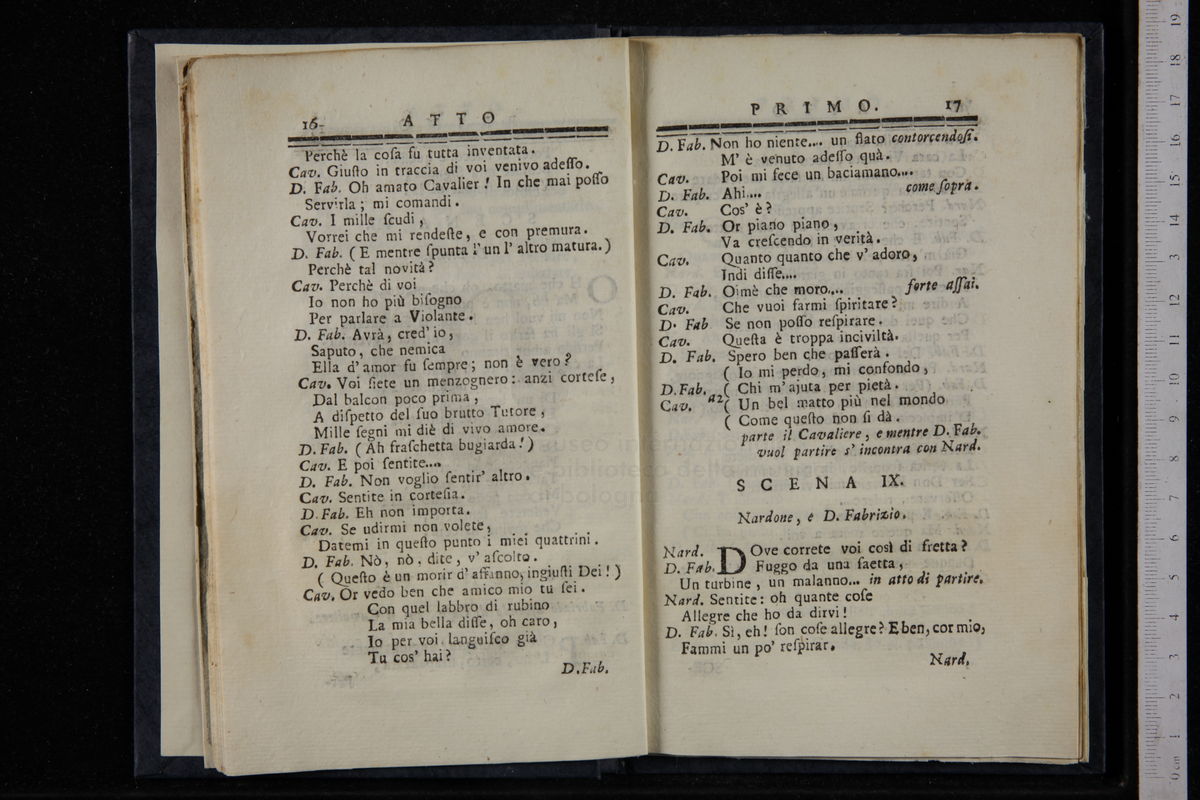 16 ATTO
Perchè la coſa fu tutta inventata.
Cav. Giuſto in traccia di voi venivo adeſſo.
D. Fab. Oh amato Cavalier! In che mai poſſo
Servirla; mi comandi.
Cav. I mille ſcudi,
Vorrei che mi rendeſte, e con premura.
D. Fab. (E mentre ſpunta l'un l'altro matura.)
Perchè tal novità?
Cav. Perchè di voi
Io non ho più biſogno
Per parlare a Violante.
D. Fab. Avrà, cred'io,
Saputo, che nemica
Ella d'amor fu ſempre; non è vero?
Cav. Voi ſiete un menzognero: anzi corteſe,
Dal balcon poco prima,
A diſpetto del ſuo brutto Tutore,
Mille ſegni mi diè di vivo amore.
D. Fab. (Ah fraſchetta bugiarda!)
Cav. E poi ſentite....
D. Fab. Non voglio ſentir' altro.
Cav. Sentite in corteſia.
D. Fab. Eh non importa.
Cav. Se udirmi non volete,
Datemi in queſto punto i miei quattrini.
D. Fab. Nò, nò, dite, v'aſcolto.
(Queſto è un morir d'affanno, ingiuſti Dei!)
Cav. Or vedo ben che amico mio tu ſei.
Con quel labbro di rubino
La mia bella diſſe, oh caro,
Io per voi languiſco già
Tu cos' hai?
D. Fab.
PRIMO. 17
D. Fab. Non ho niente.... un flato contorcendoſi.
M'è venuto adeſſo quà.
Cav. Poi mi fece un baciamano....
D. Fab. Ahi.... come ſopra.
Cav. Cos' è?
D. Fab. Or piano piano,
Va creſcendo in verità.
Cav. Quanto quanto che v'adoro,
Indi diſſe....
D. Fab. Oimè che moro.... forte aſſai.
Cav. Che vuoi farmi ſpiritare?
D. Fab Se non poſſo reſpirare.
Cav. Queſta è troppa inciviltà.
D. Fab. Spero ben che paſſerà.
( Io mi perdo, mi confondo,
D. Fab. ( Chi m'ajuta per pietà.
Cav. a2 ( Un bel matto più nel mondo
( Come queſto non ſi dà.
parte il Cavaliere, e mentre D. Fab.
vuol partire s'incontra con Nard.
SCENA IX.
Nardone, e D. Fabrizio.
Nard. DOve correte voi così di fretta?
D. Fab. Fuggo da una ſaetta,
Un turbine, un malanno... in atto di partire.
Nard. Sentite: oh quante coſe
Allegre che ho da dirvi!
D. Fab. Sì, eh! ſon coſe allegre? E ben, cor mio,
Fammi un po' reſpirar.
Nard.